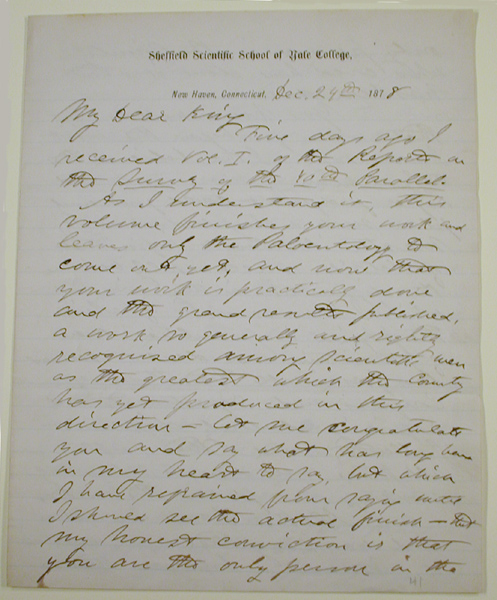 Sheffield Scientific School of Yale College,
New Haven, Connecticut, Dec. 29th 1878
My Dear King
Five days ago I
received Vol. I. of the Reports on
the Survey of the 40th Parallel.
As I understand it, this
volume finishes your work and
leaves only the Paleontology to
come out, yet, and now that
your work is practically done
and the grand results published,
a work so generally and rightly
recognised among scientific men
as the greatest which the County
has yet produced in this
direction – let me congratulate
you and say what has long been
in my heart to say, but which
I have refrained from saying until
I should see the actual finish – that
my honest conviction is that
you are the only person in the
141